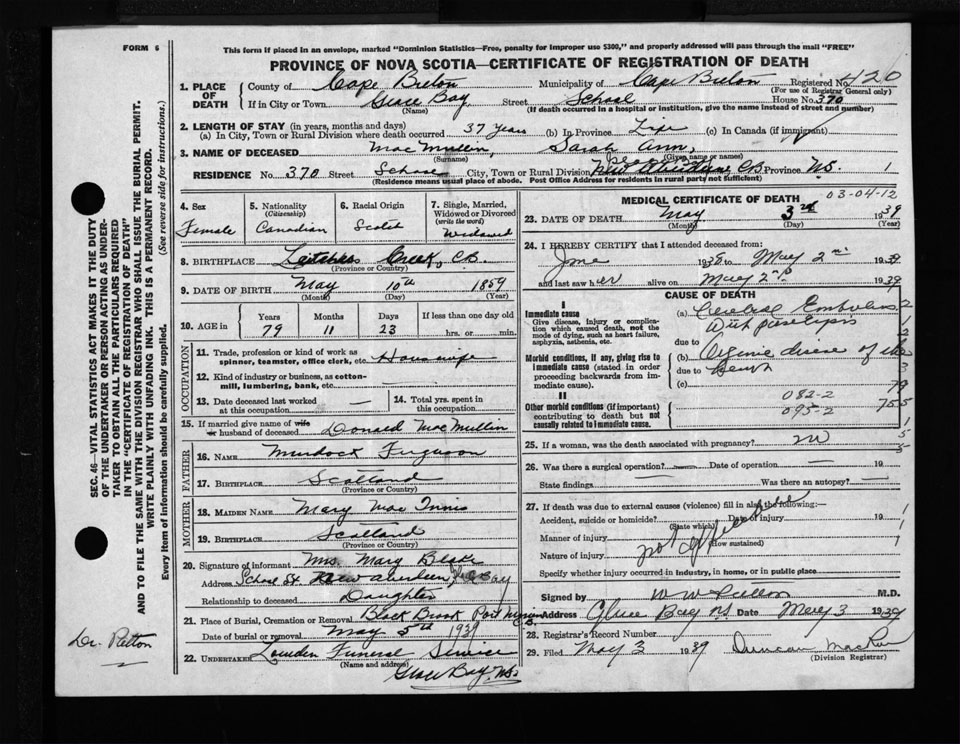 FORM 6
This form if placed in an envelope, marked "Dominion Statistics—Free, penalty for improper use $300," and properly addressed will pass through the mail "FREE"
PROVINCE OF NOVA SCOTIA—CERTIFICATE OF REGISTRATION OF DEATH
1. PLACE OF DEATH County of Cape Breton Municipality of Cape Breton Registered No. 420
(For use of Registrar General only)
If in City or Town Glace Bay Street School House No. 370
(Name) (If death occurred in a hospital or institution, give the name instead of street and number)
2. LENGTH OF STAY (in years, months and days)
(a) In City, Town or Rural Division where death occurred 37 years (b) In Province Life (c) In Canada (if immigrant)
3. NAME OF DECEASED MacMullin, Sarah Ann,
(Surname) (Given name or names)
RESIDENCE No. 370 Street School City, Town or Rural Division C.B. Province N.S. 1
(Residence means usual place of abode. Post Office Address for residents in rural parts not sufficient)
4. Sex Female
5. Nationality (Citizenship) Canadian
6. Racial Origin Scotch
7. Single, Married, Widowed or Divorced (write the word) Widowed
8. BIRTHPLACE Creek, C.B.
(Province or Country)
9. DATE OF BIRTH May 10th 1859
(Month) (Day) (Year)
10. AGE in Years 79 Months 11 Days 23 If less than one day old hrs. or min.
OCCUPATION
11. Trade, profession or kind of work as spinner, teamster, office clerk, etc. Housewife
12. Kind of industry or business, as cotton-mill, lumbering, bank, etc. —
13. Date deceased last worked at this occupation —
14. Total yrs. spent in this occupation
15. If married give name of wife or husband of deceased Donald MacMullin
FATHER
16. NAME Murdock Ferguson
17. BIRTHPLACE Scotland
(Province or Country)
MOTHER
18. MAIDEN NAME Mary MacInnis
19. BIRTHPLACE Scotland
(Province or Country)
20. Signature of informant Mrs. Mary Blake
Address School St. New Aberdeen, Bay
Relationship to deceased Daughter
21. Place of Burial, Cremation or Removal Black Brook Port
Date of burial or removal May 5th 1939
22. UNDERTAKER Lowden Funeral Service
(Name and address)
Glace Bay, N.S.
MEDICAL CERTIFICATE OF DEATH 03-04-12
23. DATE OF DEATH May 3rd 1939
(Month) (Day) (Year)
24. I HEREBY CERTIFY that I attended deceased from
to May 2nd 1939
and last saw her alive on May 2nd 1939
CAUSE OF DEATH
I
Immediate cause
Give disease, injury or complication which caused death, not the mode of dying, such as heart failure, asphyxia, asthenia, etc.
(a) Cerebral Embolism
due to with paralysis
Morbid conditions, if any, giving rise to immediate cause (stated in order proceeding backwards from immediate cause).
(b) Organic disease of the
due to
(c)
II
Other morbid conditions (if important) contributing to death but not causally related to immediate cause.
082-2
095-2
25. If a woman, was the death associated with pregnancy? no
26. Was there a surgical operation? — Date of operation — 19
State findings — Was there an autopsy? —
27. If death was due to external causes (violence) fill in also the following:—
Accident, suicide or homicide? Date of injury 19
(State which)
Manner of injury
(How sustained)
Nature of injury
Specify whether injury occurred in industry, in home, or in public place
Signed by W W Patton M.D.
Address Glace Bay NS Date May 3 1939
28. Registrar's Record Number
29. Filed May 3 1939 Duncan
(Division Registrar)
SEC. 46—VITAL STATISTICS ACT MAKES IT THE DUTY
OF THE UNDERTAKER OR PERSON ACTING AS UNDERTAKER TO OBTAIN ALL THE PARTICULARS REQUIRED
IN THE "CERTIFICATE OF REGISTRATION OF DEATH"
AND TO FILE THE SAME WITH THE DIVISION REGISTRAR WHO SHALL ISSUE THE BURIAL PERMIT.
WRITE PLAINLY WITH UNFADING INK. THIS IS A PERMANENT RECORD.
Every item of information should be carefully supplied. (See reverse side for instructions.)
Dr. Patton